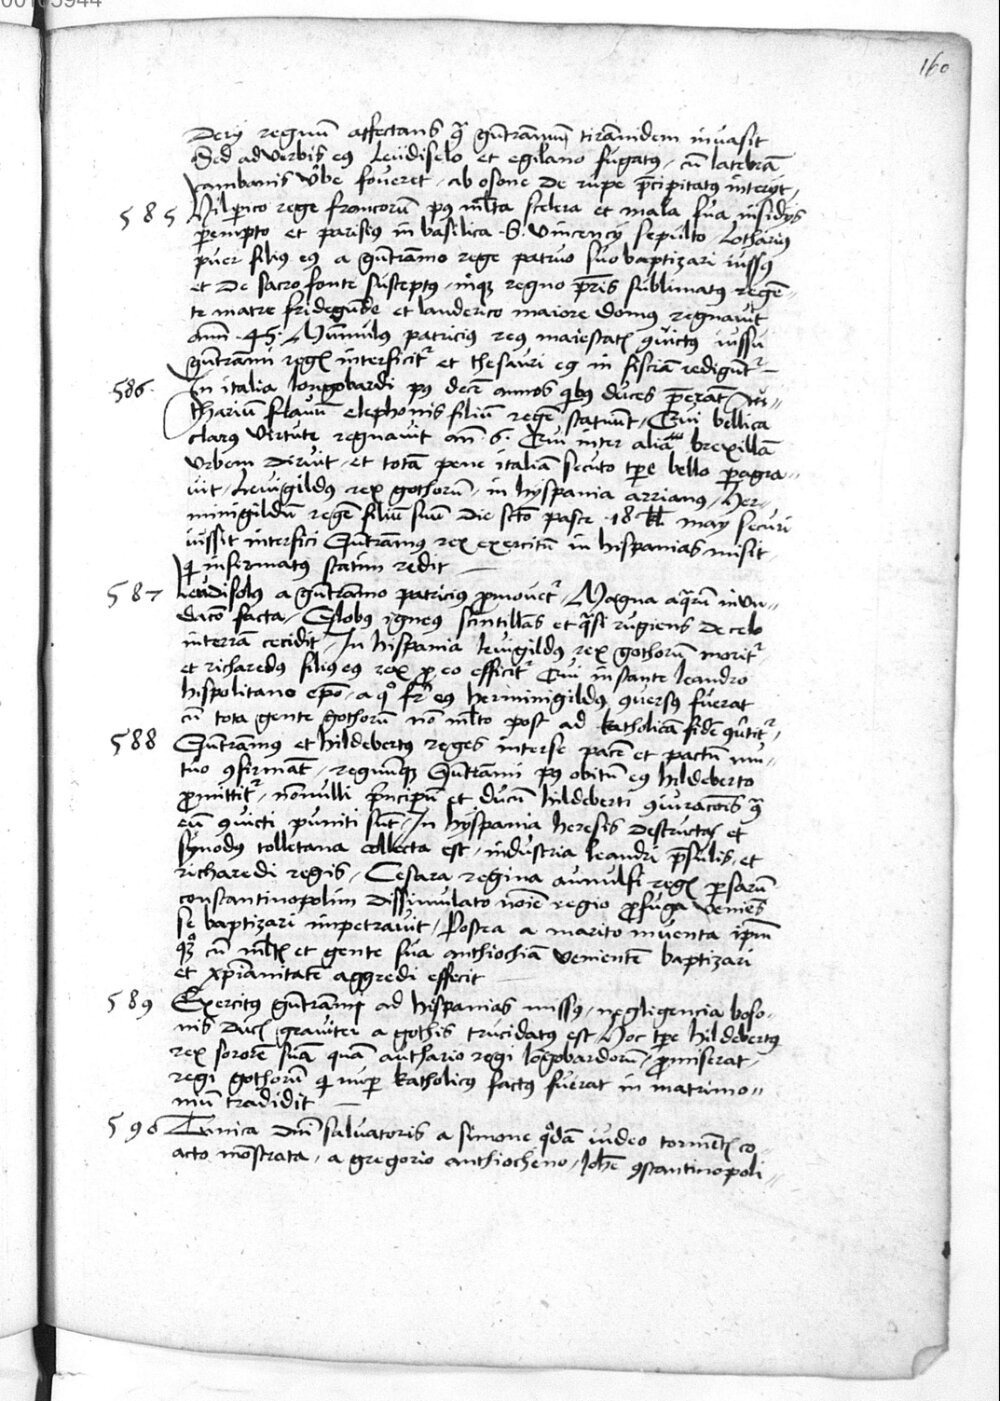 00105944
160
derij regnum affectans q̃a gũtrannũ tirannidem invasit
Sed ad verbis eꝰ leudiselo et egilano fugatꝰ, cũ latebrã
cambanis vrbe foveret, ab osone de rupe p̃cipitatus interijt,
585 Hilꝑico rege francorũ pꝰ mlta scelera et mala sua insidijs
ꝑempto et parisiꝰ in basilica S. vincencij sepulto lotharius
puer filius eꝰ a gũtranno rege patruo suo baptizari iussꝰ
et de sacro fonte susceptꝰ, inqꝫ regno p̃ris sublimatus regẽ-
te matre fridegũde et landerico maiore domus regnavit
ann. 45. Mũmulus patricius reꝰ maiestatꝭ ꝯvictus iussu
gũtranni regꝭ interficitʳ et thesauri eꝰ in fiscũ redigũtʳ
586. In italia longobardi pꝰ decẽ annos qibꝰ duces p̃erãt Au-
tharium flauũ clephonis filiũ regẽ statuũt, Qui bellica
clarꝰ virtute regnavit ann. 6. Qui inter alia brexillã
vrbem diruit, et totã pene italiã secuto tꝑe bello ꝑagra-
vit, Levigildꝰ rex gothorũ, in hyspania arrianꝰ, Her-
minigildũ regẽ filiũ suũ die scto pasce 18 kl. may securi
iussit interfici Gũtrannus rex exercitũ in hispanias misit
qi infirmatus statim redit
587 Leudisolꝰ a gũtranno patricius ꝓmovetʳ, Magna aq̃rũ inun-
dacõ facta, Globus igneus scintillas et q̃si rugiens de celo
in terrã cecidit, In hispania levigildꝰ rex gothorũ moritʳ
et richaredꝰ filius eꝰ rex ꝓ eo efficitʳ Qui instante leandro
hispolitano ep̃o, a qº frẽ eꝰ herminigildꝰ ꝯversꝰ fuerat
cũ tota gente gothorũ nõ mlto post ad katholicã fidẽ ꝯv̾titʳ,
588 Gũtrannus et hildebertꝰ reges inter se pacẽ et pactũ mu-
tuo ꝯfirmãt, regnũqꝫ Gũtranni pꝰ obitũ eꝰ hildeberto
ꝓmittitʳ, nõnulli p̃ncipũ et ducũ hildeberti ꝯiuracõis q̃a
eũ ꝯvicti puniti sũt, In hyspania heresis destructa, et
synodꝰ tolletana collecta est, industria leandri p̃sulis, et
richaredi regis, Cesara regina aunulfi regꝭ ꝑsarũ
constantinopolim dissimulato noie regio ꝓfuga veniẽs
se baptizari impetravit, Postea a marito inventa ip̃m
qꝫ cũ mltꝭ et gente sua anthiochiã venientẽ baptizari
et xp̃ianitatẽ aggredi effecit
589 Exercitꝰ gũtranni ad hispanias missꝰ, negligencia boso-
nis ducꝭ graviter a gothis trucidatꝰ est Hoc tꝑe hildebertꝰ
rex sororẽ suã quã authario regi lõgobardorũ, ꝓmiserat,
regi gothorũ qi nuꝑ katholicꝰ factꝰ fuerat in matrimo-
niũ tradidit
590 Tunica dni salvatoris a simone qᵒdã iudeo tormẽtꝭ co-
acto mõstrata, a gregorio anthiocheno, Johẽ ꝯstantinopoli-